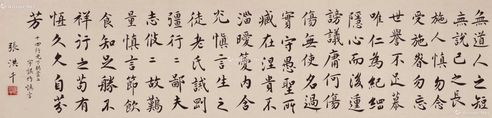 無道人之短
無說己之長
施人慎勿念
受施慎勿忘
世譽不足慕
唯仁為紀綱
隱心而後動
謗議庸何
傷無使名過
實守愚聖所
臧在涅貴不
淄曖曖內含
光生之
徒老氏誡剛
彊行行鄙夫
志悠悠故難
量慎言節飲
食知足勝不
祥行之苟有
恆久久自芬
芳
張洪千